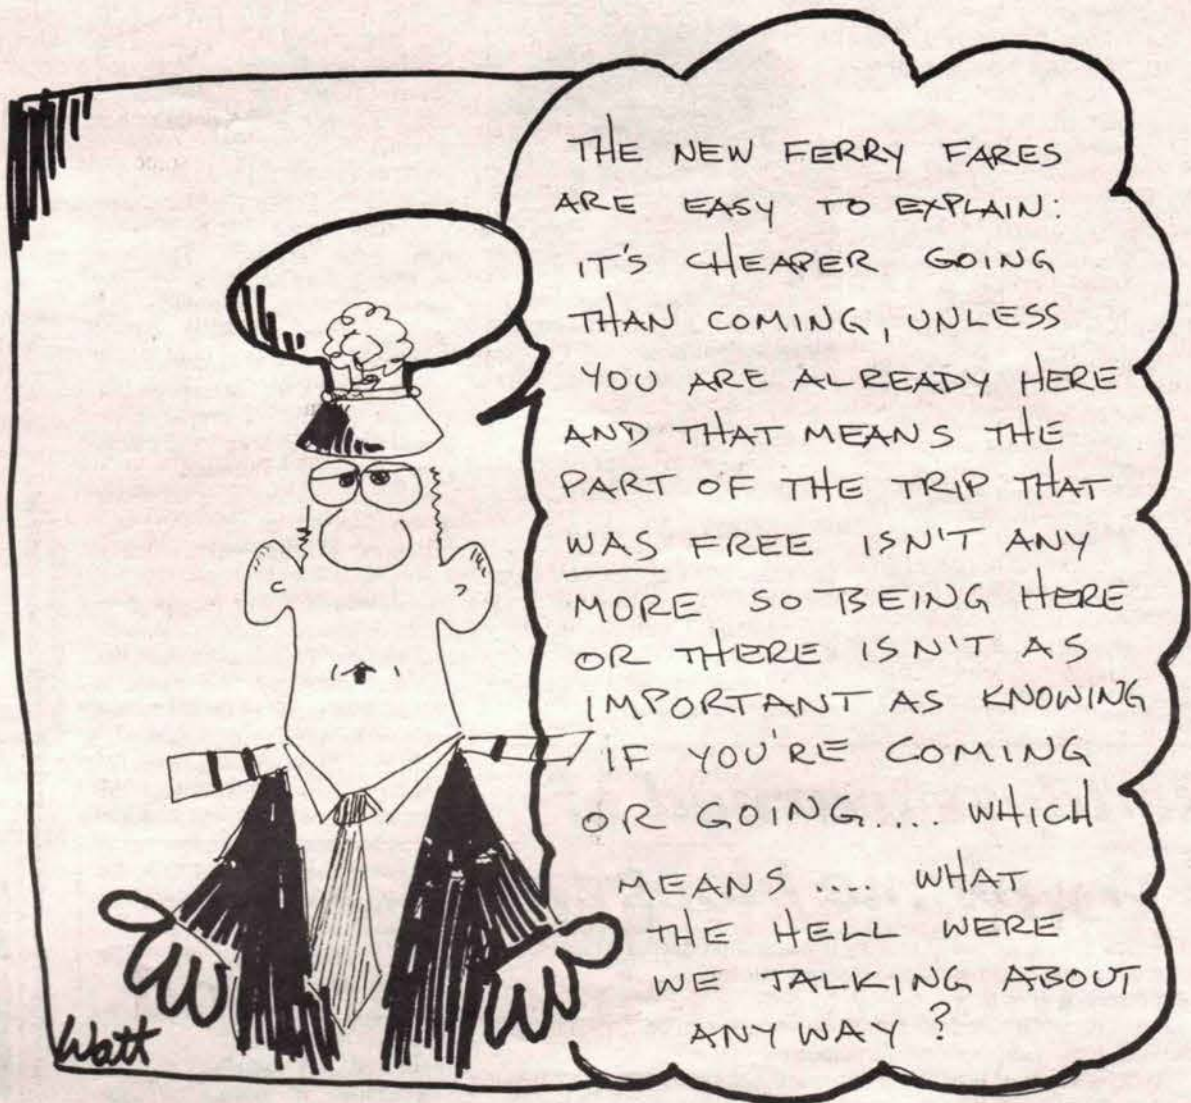 THE NEW FERRY FARES
ARE EASY TO EXPLAIN:
IT'S CHEAPER GOING
THAN COMING, UNLESS
YOU ARE ALREADY HERE
AND THAT MEANS THE
PART OF THE TRIP THAT
WAS FREE ISN'T ANY
MORE SO BEING HERE
OR THERE ISN'T AS
IMPORTANT AS KNOWING
IF YOU'RE COMING
OR GOING.... WHICH
MEANS .... WHAT
THE HELL WERE
WE TALKING ABOUT
ANY WAY?
Watt